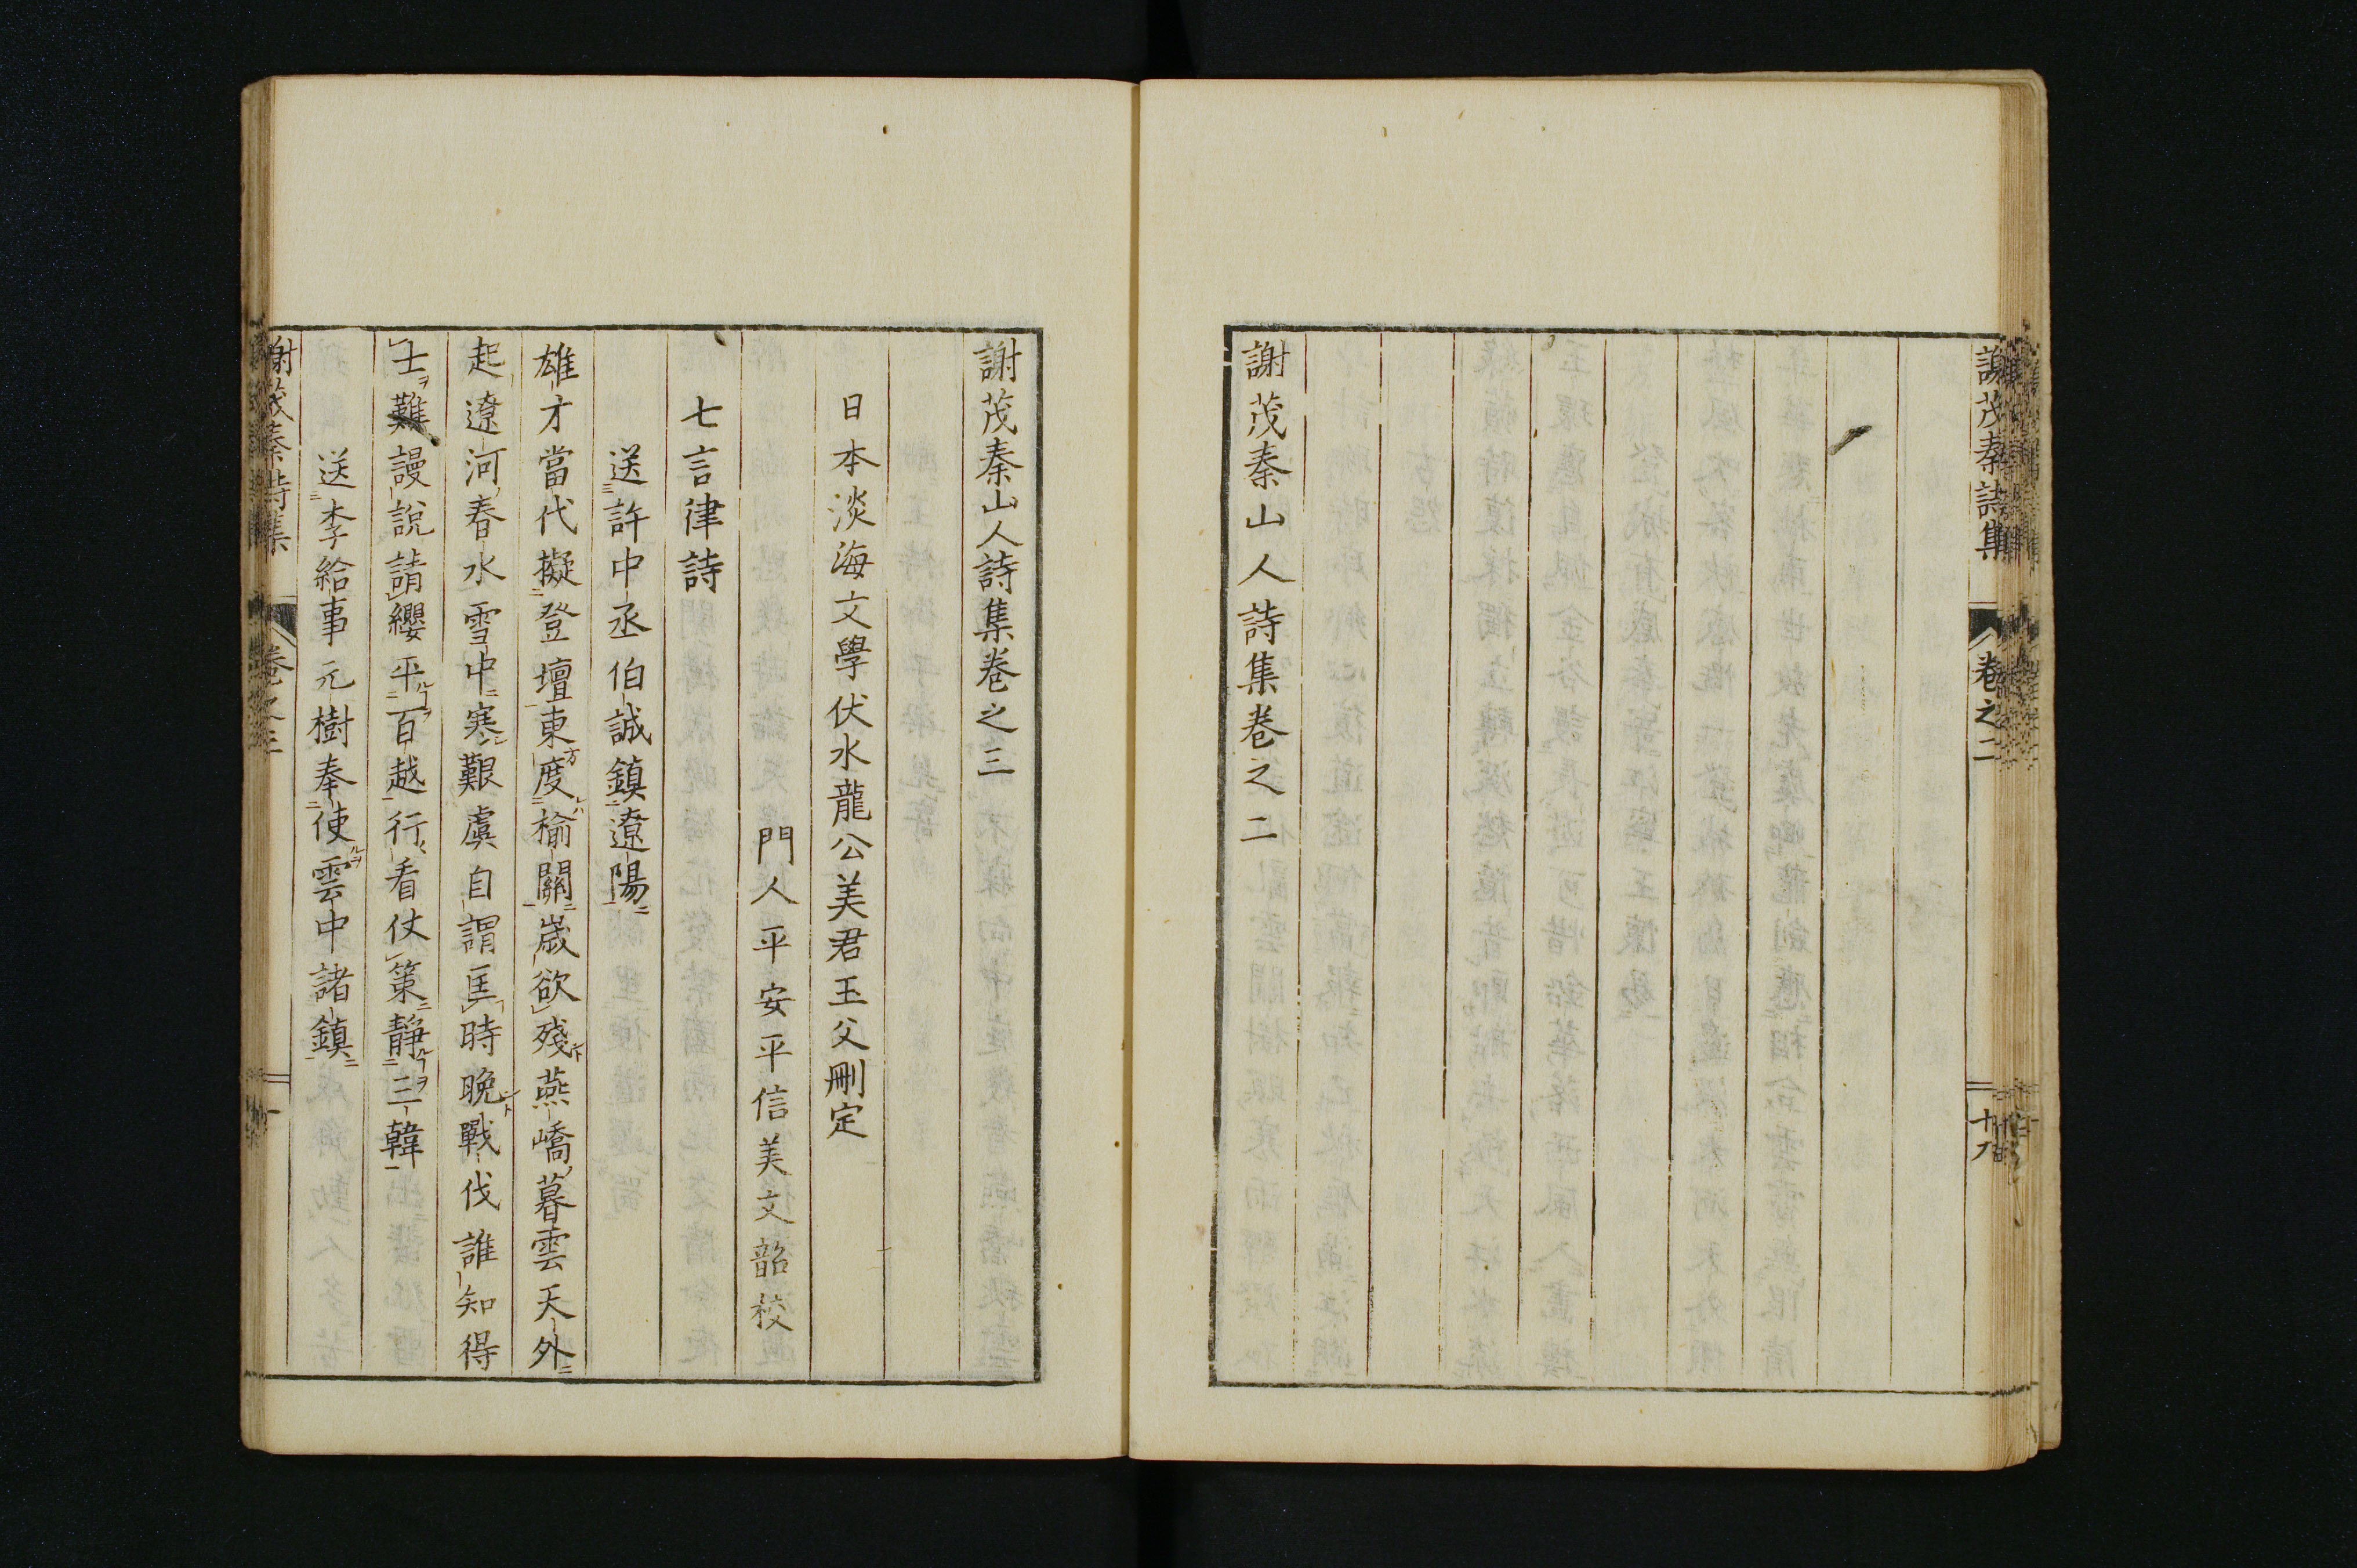 謝茂秦詩集 卷之二 十九
謝茂秦山人詩集卷之二
謝茂秦山人詩集卷之三
日本淡海文學伏水龍公美君玉父刪定
門人平安平信美文韶校
七言律詩
送許中丞伯誠鎮遼陽
雄才當代擬登壇東度榆關歲欲殘燕嶠暮雲天外
起遼河春水雪中寒艱虞自謂匡時晚戰伐誰知得
士難謾說請纓平百越行看仗策靜三韓
送李給事元樹奉使雲中諸鎮
謝茂秦詩集 卷之三 一